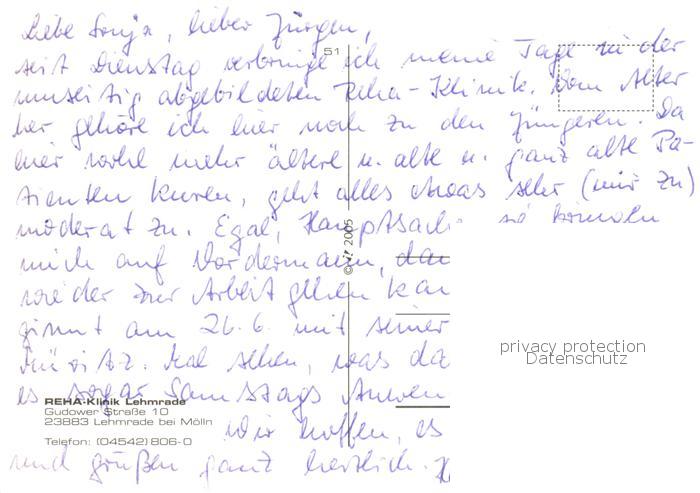 Liebe Sonja, lieber Jürgen,
51
seit Dienstag verbringe ich meine Tage in der
umseitig abgebildeten Reha-Klinik. Vom Alter
her gehöre ich hier noch zu den Jüngeren. Da
hier wohl mehr ältere u. alte u. ganz alte Pa-
tienten kuren, geht alles etwas sehr (mir zu)
moderat zu. Egal, Hauptsache sie bringen
mich auf Vordermann,
wieder zur Arbeit gehen kan
ginnt am 26.6. mit seiner
Mal sehen, was da
es sogar Samstags Anwen
© 2005
REHA-Klinik Lehmrade
Gudower Straße 10
23883 Lehmrade bei Mölln
Telefon: (04542) 806-0
Wir hoffen, es
und grüßen ganz herzlich.
privacy protection
Datenschutz